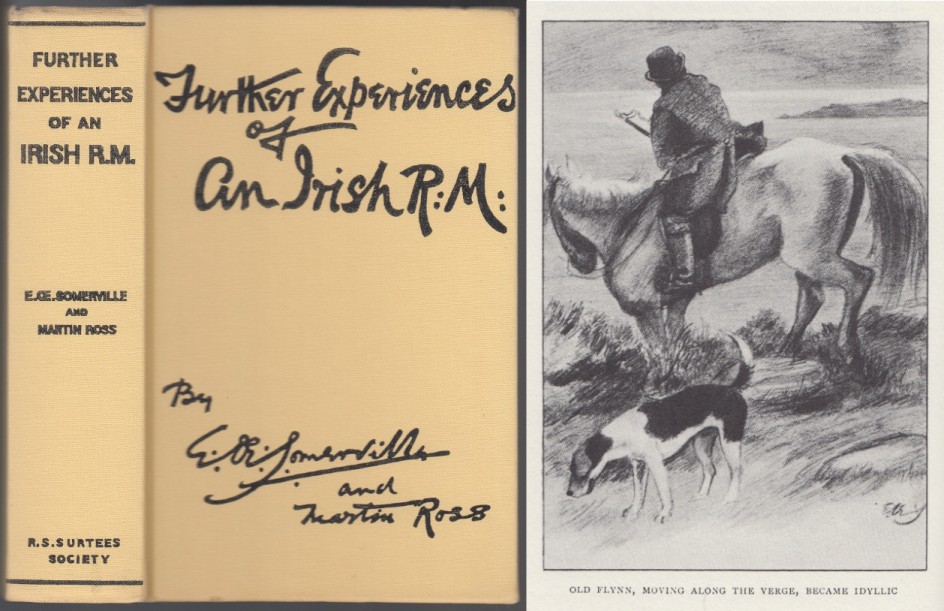 FURTHER
EXPERIENCES
OF AN
IRISH R.M.
E.Œ.SOMERVILLE
AND
MARTIN ROSS
R.S.SURTEES
SOCIETY
Further Experiences
of
An Irish R:M:
By
E:Œ:Somerville
and
Martin Ross
OLD FLYNN, MOVING ALONG THE VERGE, BECAME IDYLLIC